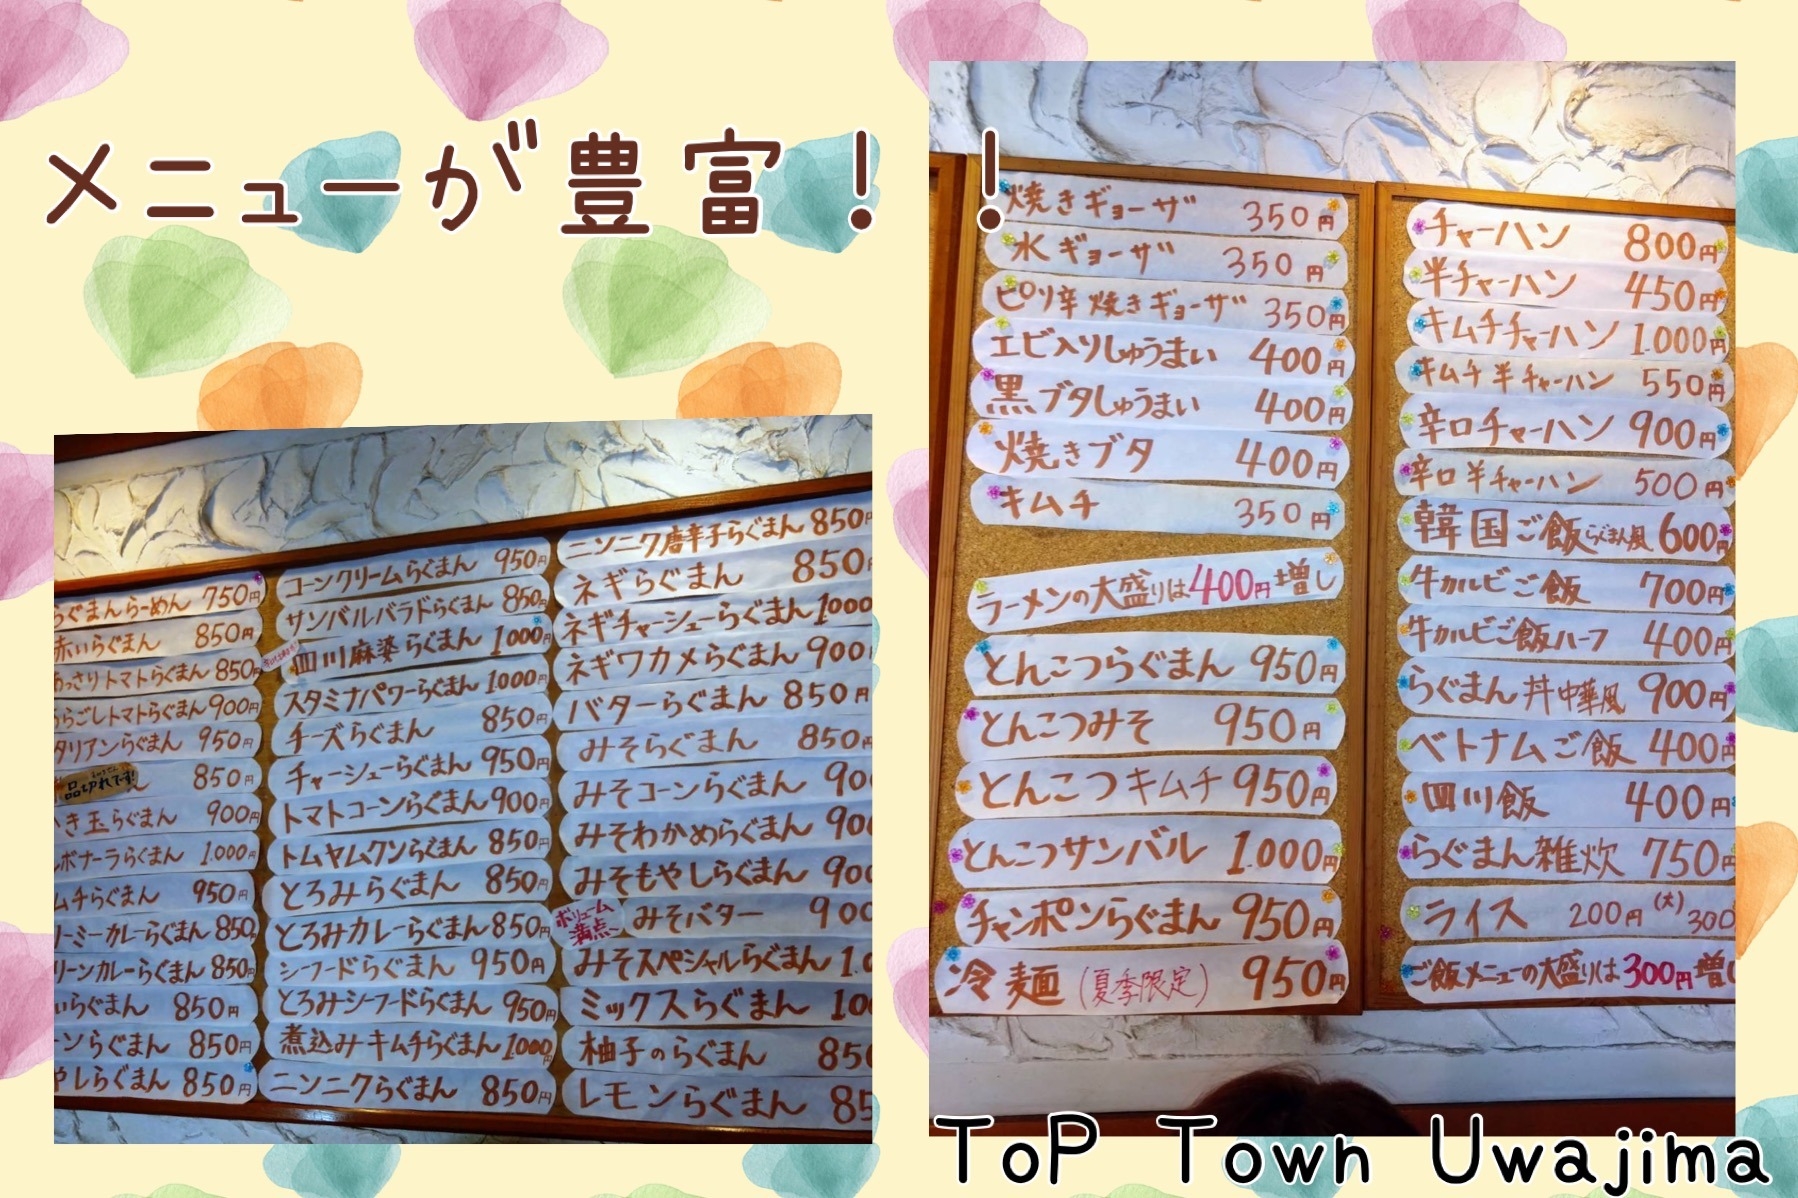 メニューが豊富！！
らぐまんらーめん 750円
赤いらぐまん 850円
あっさりトマトらぐまん 850円
うらごしトマトらぐまん 900円
タリアンらぐまん 950円
品切れです! 850円
き玉らぐまん 900円
ルボナーララぐまん 1.000円
ムチらぐまん 950円
リーミーカレーらぐまん 850円
リーンカレーらぐまん 850円
いらぐまん 850円
ンらぐまん 850円
やしらぐまん 850円
コーンクリームらぐまん 950円
サンバルバラドらぐまん 850円
四川麻婆らぐまん 1000円
スタミナパワーらぐまん 1000円
チーズらぐまん 850円
チャーシューらぐまん 950円
トマトコーンらぐまん 900円
トムヤムクンらぐまん 850円
とろみらぐまん 850円
とろみカレーらぐまん 850円
シーフードらぐまん 950円
とろみシーフードらぐまん 950円
煮込みキムチらぐまん 1000円
ニンニクらぐまん 850円
ニンニク唐辛子らぐまん 850円
ネギらぐまん 850円
ネギチャーシューらぐまん 1000
ネギワカメらぐまん 900円
バターらぐまん 850円
みそらぐまん 850円
みそコーンらぐまん 900
みそわかめらぐまん 900
みそもやしらぐまん 900
ボリューム満点 みそバター 900
みそスペシャルらぐまん 1.0
ミックスらぐまん 100
柚子のらぐまん 850
レモンらぐまん 85
焼きギョーザ 350円
水ギョーザ 350円
ピリ辛焼きギョーザ 350円
エビ入りしゅうまい 400円
黒ブタしゅうまい 400円
焼きブタ 400円
キムチ 350円
ラーメンの大盛りは400円増し
とんこつらぐまん 950円
とんこつみそ 950円
とんこつキムチ 950円
とんこつサンバル 1.000円
チャンポンらぐまん 950円
冷麺(夏季限定) 950円
チャーハン 800円
半チャーハン 450円
キムチチャーハン 1.000円
キムチ半チャーハン 550円
辛口チャーハン 900円
辛口半チャーハン 500円
韓国ご飯らぐまん風 600円
牛カルビご飯 700円
牛カルビご飯ハーフ 400円
らぐまん丼中華風 900円
ベトナムご飯 400円
四川飯 400円
らぐまん雑炊 750円
ライス 200円 (大)300
ご飯メニューの大盛りは300円増し
ToP Town Uwajima